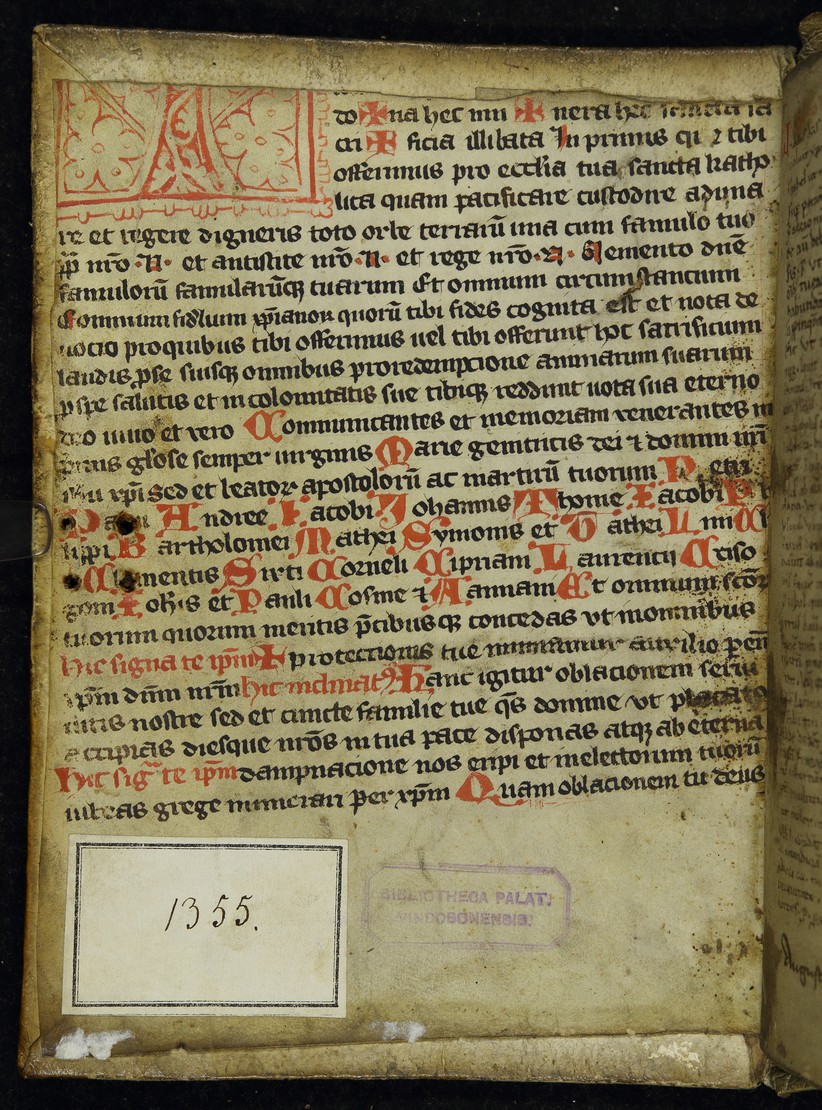 do ✠ na hec mu ✠ nera hec sancta sa
cri ✠ ficia illibata In primis qͥ ⁊ tibi
offerimus pro ecclīa tua sancta katho
lica quam pacificare custodire aduna
re et regere digneris toto orbe terrarū una cum famulo tuo
pp̄ nr̄o ·N· et antistite nr̄o ·N· et rege nr̄o ·N· Memento dn̄e
famulorū famularūqꝫ tuarum Et omnium circumstancium
Et omnium fidelium xp̄ianoꝝ quorū tibi fides cognita est et nota de
uocio pro quibus tibi offerimus uel tibi offerunt hoc sacrificium
laudis ꝓ se suisqꝫ omnibus pro redempcione animarum suarum
ꝓ spe salutis et incolomitatis sue tibiqꝫ reddunt uota sua eterno
deo uiuo et vero Communicantes et memoriam venerantes in
primis glōse semper uirginis Marie genitricis dei ⁊ domini nr̄i
ihu xp̄i Sed et beatoꝝ apostolorū ac martirū tuorum Petri
Pauli Andree Iacobi Johannis Thome Iacobi Phi
lippi Bartholomei Mathei Symonis et Tathei Lini Cl
Clementis Sixti Corneli Cipriani Laurencij Criso
goni Ioh̄is et Pauli Cosme ⁊ Damiani Et omnium sc̄oꝝ
tuorum quorum meritis p̄cibusqꝫ concedas vt in omnibus
hic signa te ip̄m ✠ protectionis tue muniamur auxilio ꝑ eūn
xp̄m dn̄m nr̄m hic inclinatꝰ Hanc igitur oblacionem serui
tutis nostre sed et cuncte familie tue qs̄ domine vt placatꝰ
accipias diesque nr̄os in tua pace disponas atqꝫ ab eterna
hic sigͣ te ip̄m dampnacione nos eripi et in electorum tuorū
iubeas grege numerari per xp̄m Quam oblacionem tu deus
1355.
BIBLIOTHECA PALAT.
VINDOBONENSIS.